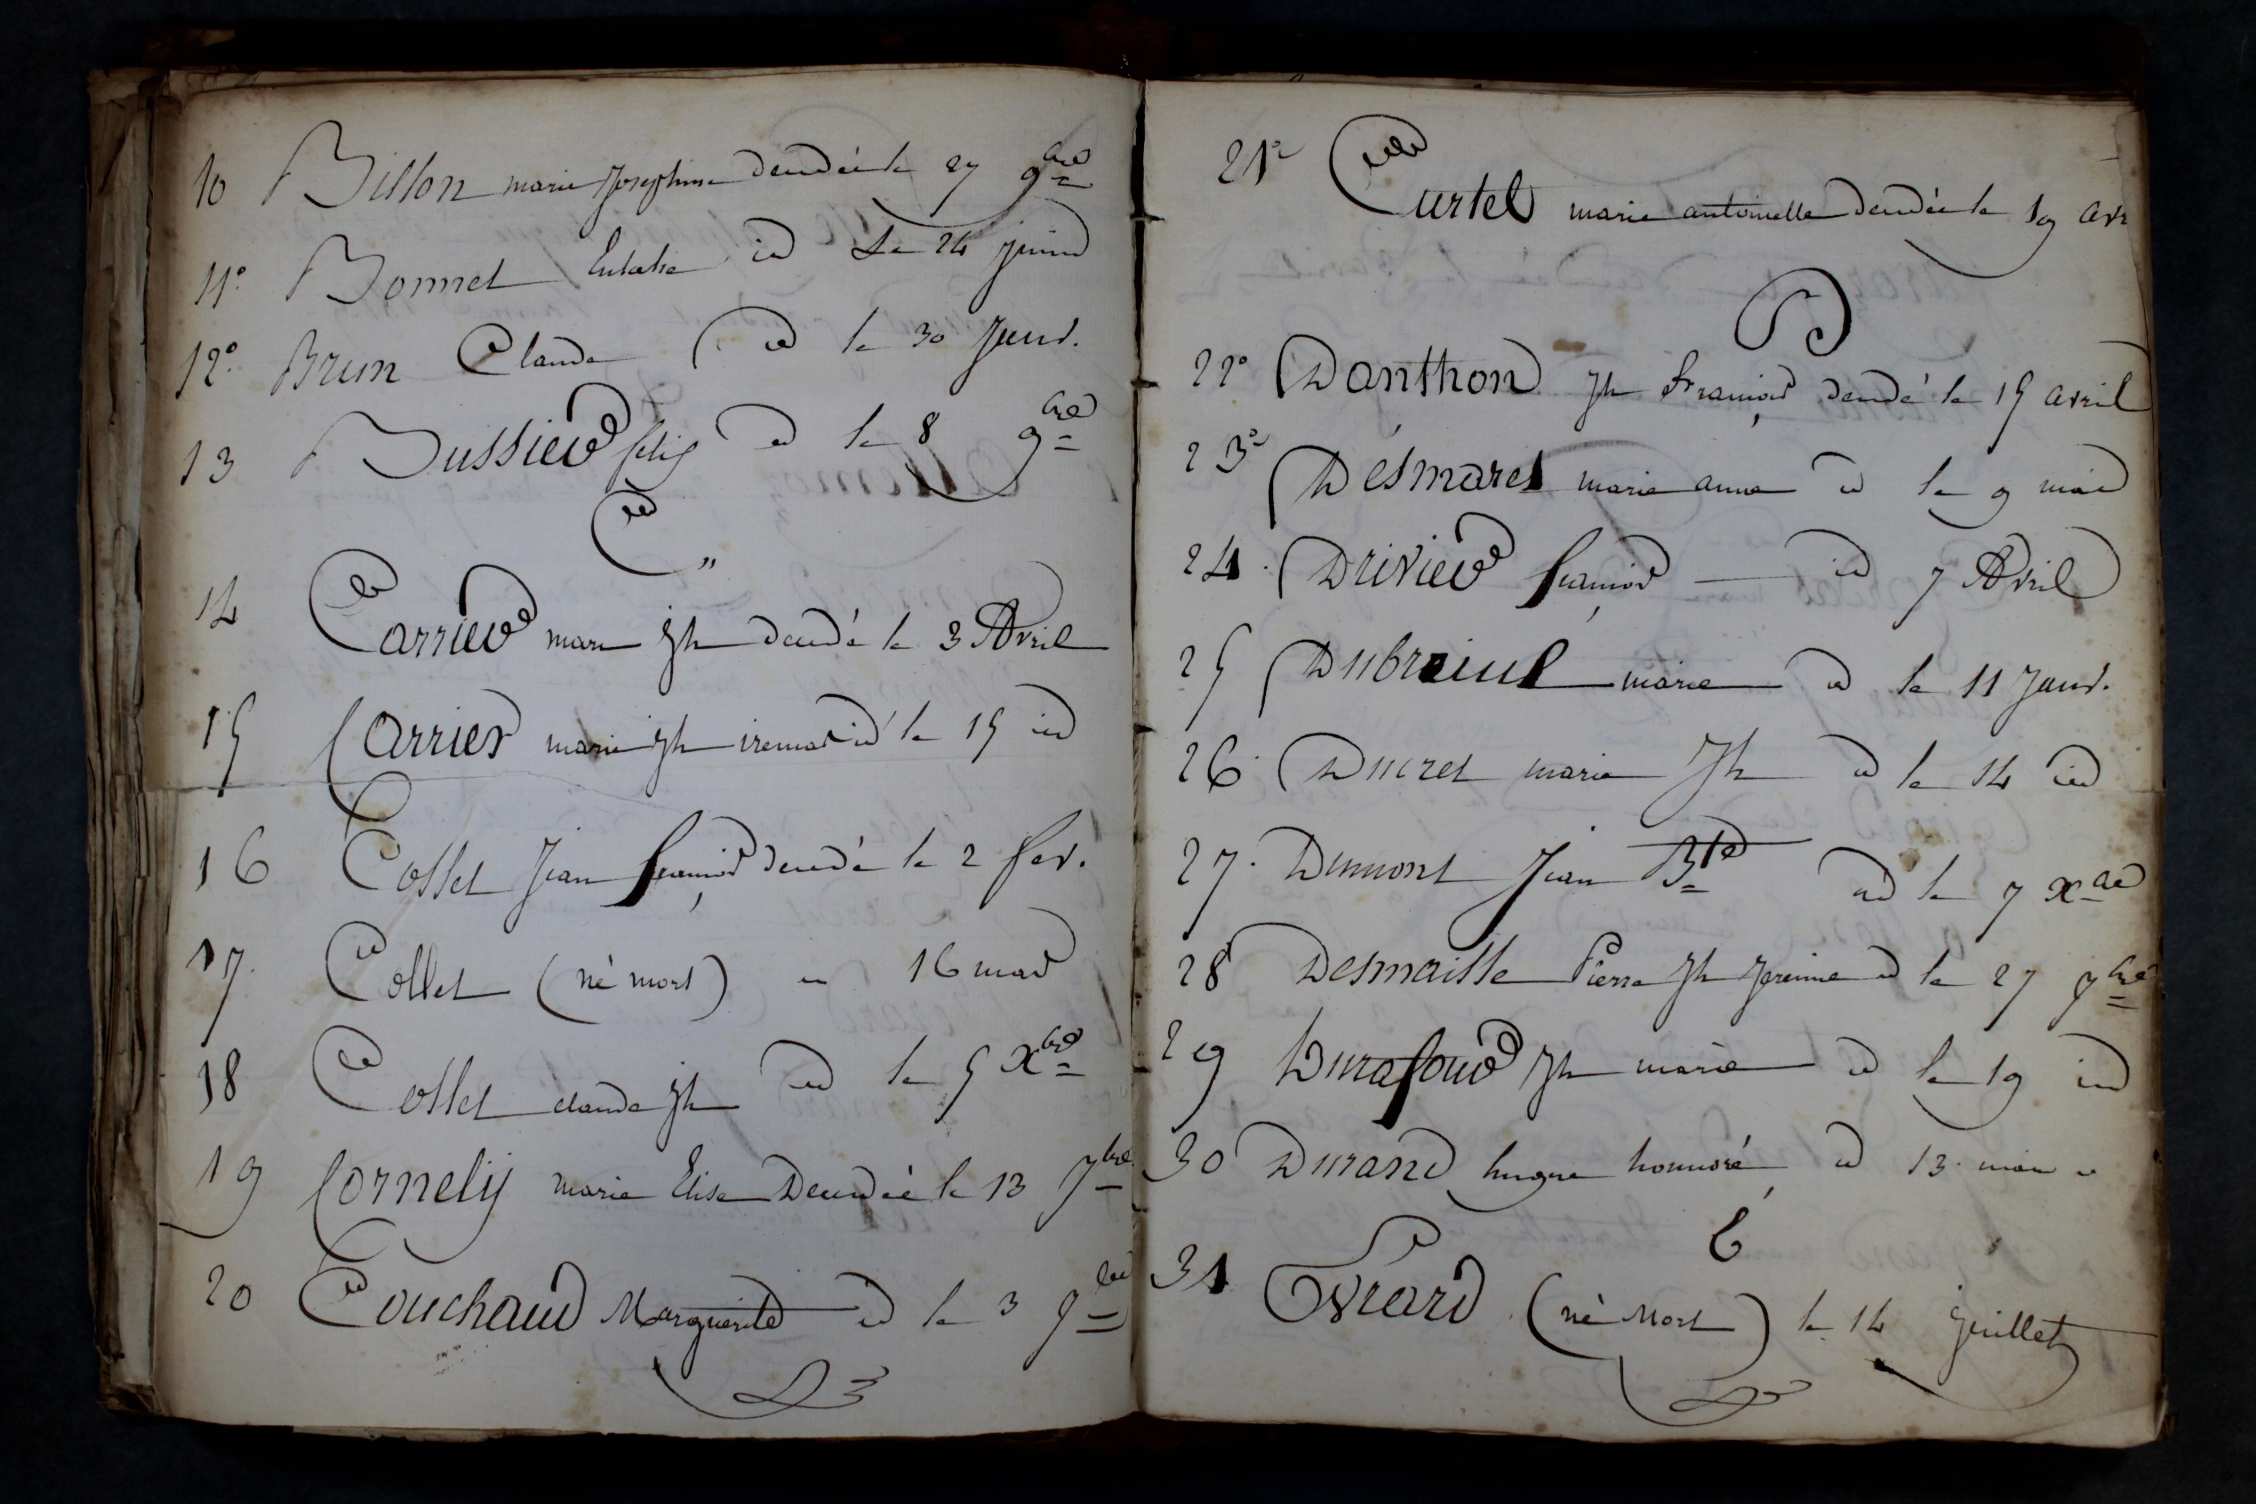 10 Billon marie Josephine décédée le 27 9bre
11° Bonnet Eulalie id Le 24 juin
12° Brun Claude id le 30 Janv.
13 Bussieu félix id le 8 9bre
C
14 Carrier marie Jh décédé le 3 Avril
15 Carrier marie Jh id le 15 id
16 Collet Jean françois décédé le 2 fev.
17. Collet (né mort) 16 mars
18 Collet claude Jh id le 5 Xbre
19 Cornelij marie Elise Décédée le 13 7bre
20 Couchaud Marguerite id le 3 9bre
21° Curtel marie antoinette décédée le 19 avr
D
22° Danthon Jh françois décédé le 15 avril
23° Desmaret marie anne id le 9 mai
24. Drivier françois id 7 Avril
25 Dubreiul marie id le 11 Janv.
26. Ducret marie Jh id le 14 id
27. Dumont Jean Bte id le 7 Xbre
28 Desmaille Pierre Jh id le 27 7bre
29 Durafour Jh marie id le 19 id
30 Durand hugue honnoré id 13
E
31 Evrard (né Mort) le 14 Juillet